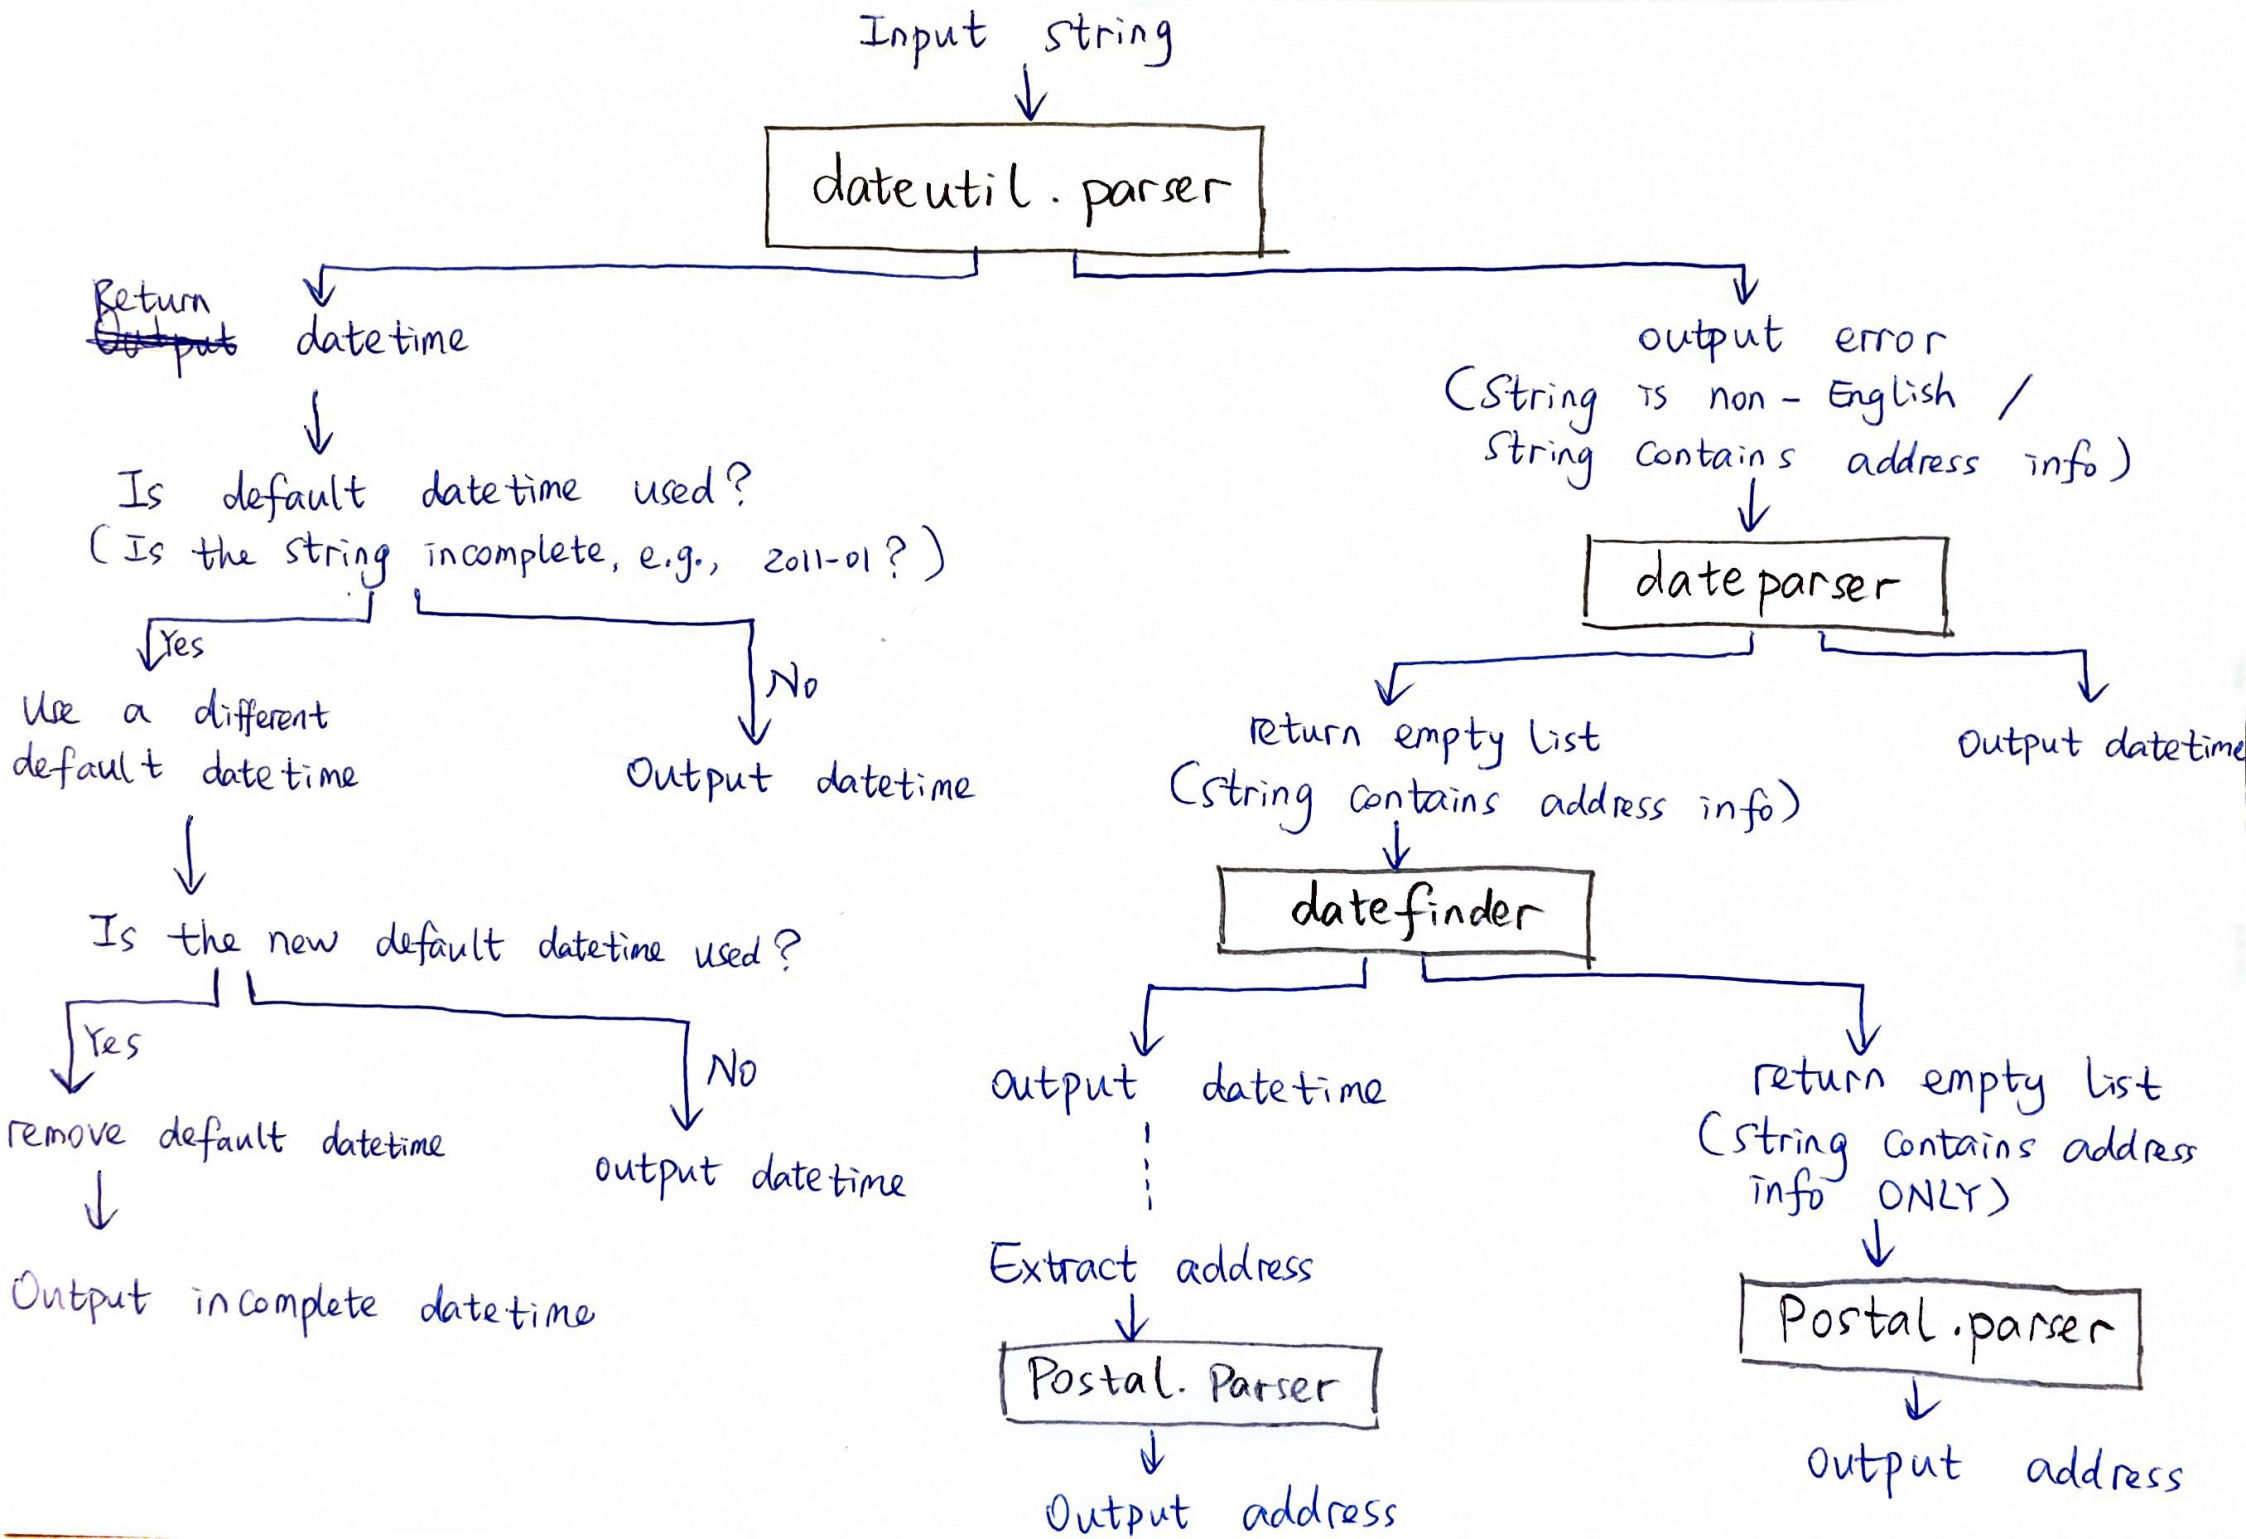 Input string
dateutil.parser
Return
Output datetime
Is default datetime used?
(Is the string incomplete, e.g., 2011-01?)
Yes
No
Use a different
default datetime
Output datetime
Is the new default datetime used?
Yes
No
remove default datetime
output datetime
Output incomplete datetime
output error
(String is non-English /
String contains address info)
dateparser
return empty list
(string contains address info)
Output datetime
datefinder
output datetime
Extract address
Postal.Parser
Output address
return empty list
(string contains address
info ONLY)
Postal.parser
Output address